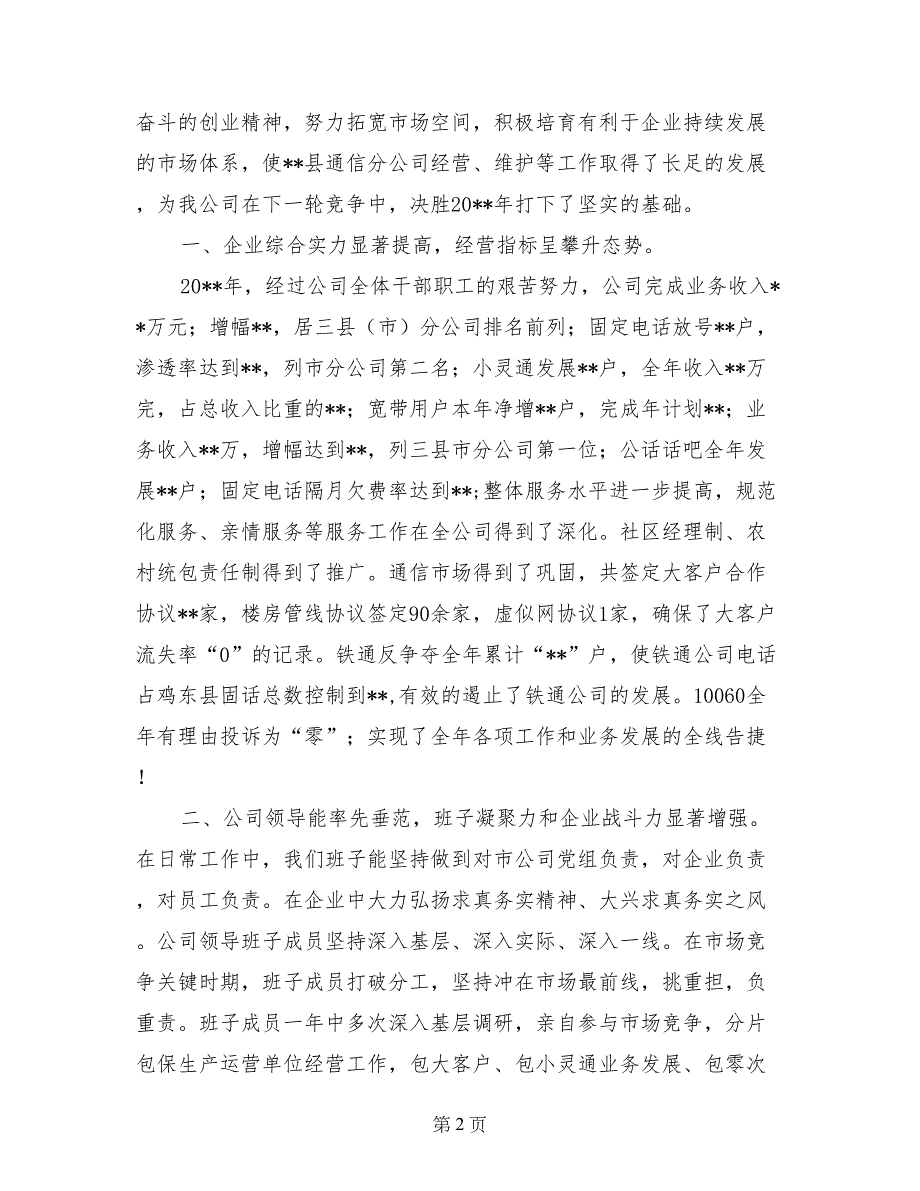 奋斗的创业精神，努力拓宽市场空间，积极培育有利于企业持续发展
的市场体系，使**县通信分公司经营、维护等工作取得了长足的发展
，为我公司在下一轮竞争中，决胜20**年打下了坚实的基础。
一、企业综合实力显著提高，经营指标呈攀升态势。
20**年，经过公司全体干部职工的艰苦努力，公司完成业务收入*
*万元；增幅**，居三县（市）分公司排名前列；固定电话放号**户，
渗透率达到**，列市分公司第二名；小灵通发展**户，全年收入**万
完，占总收入比重的**；宽带用户本年净增**户，完成年计划**；业
务收入**万，增幅达到**，列三县市分公司第一位；公话话吧全年发
展**户；固定电话隔月欠费率达到**;整体服务水平进一步提高，规范
化服务、亲情服务等服务工作在全公司得到了深化。社区经理制、农
村统包责任制得到了推广。通信市场得到了巩固，共签定大客户合作
协议**家，楼房管线协议签定90余家，虚似网协议1家，确保了大客户
流失率“0”的记录。铁通反争夺全年累计“**”户，使铁通公司电话
占鸡东县固话总数控制到**,有效的遏止了铁通公司的发展。10060全
年有理由投诉为“零”；实现了全年各项工作和业务发展的全线告捷
！
二、公司领导能率先垂范，班子凝聚力和企业战斗力显著增强。
在日常工作中，我们班子能坚持做到对市公司党组负责，对企业负责
，对员工负责。在企业中大力弘扬求真务实精神、大兴求真务实之风
。公司领导班子成员坚持深入基层、深入实际、深入一线。在市场竞
争关键时期，班子成员打破分工，坚持冲在市场最前线，挑重担，负
重责。班子成员一年中多次深入基层调研，亲自参与市场竞争，分片
包保生产运营单位经营工作，包大客户、包小灵通业务发展、包零次
第 2 页